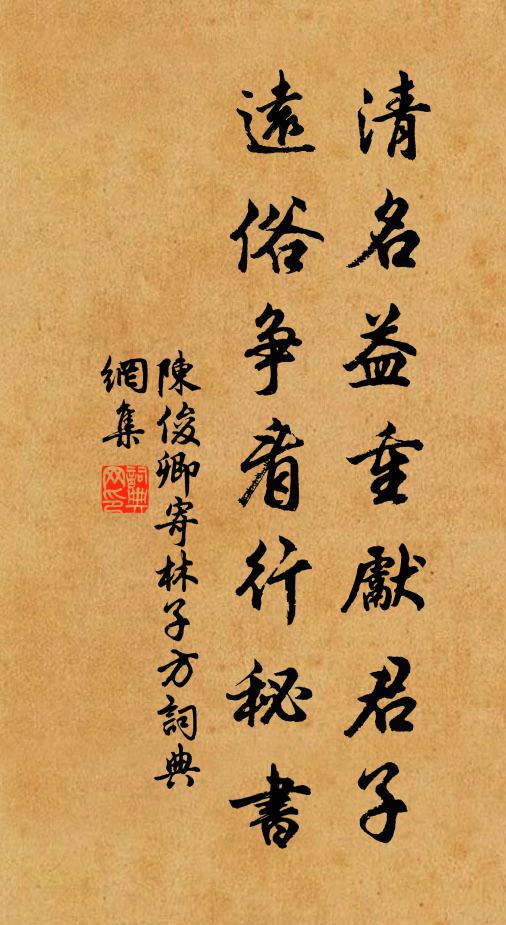 清名益重獻君子
遠俗争看行秘書
陳俊卿寄林子方詞典
網集
詞典
网印